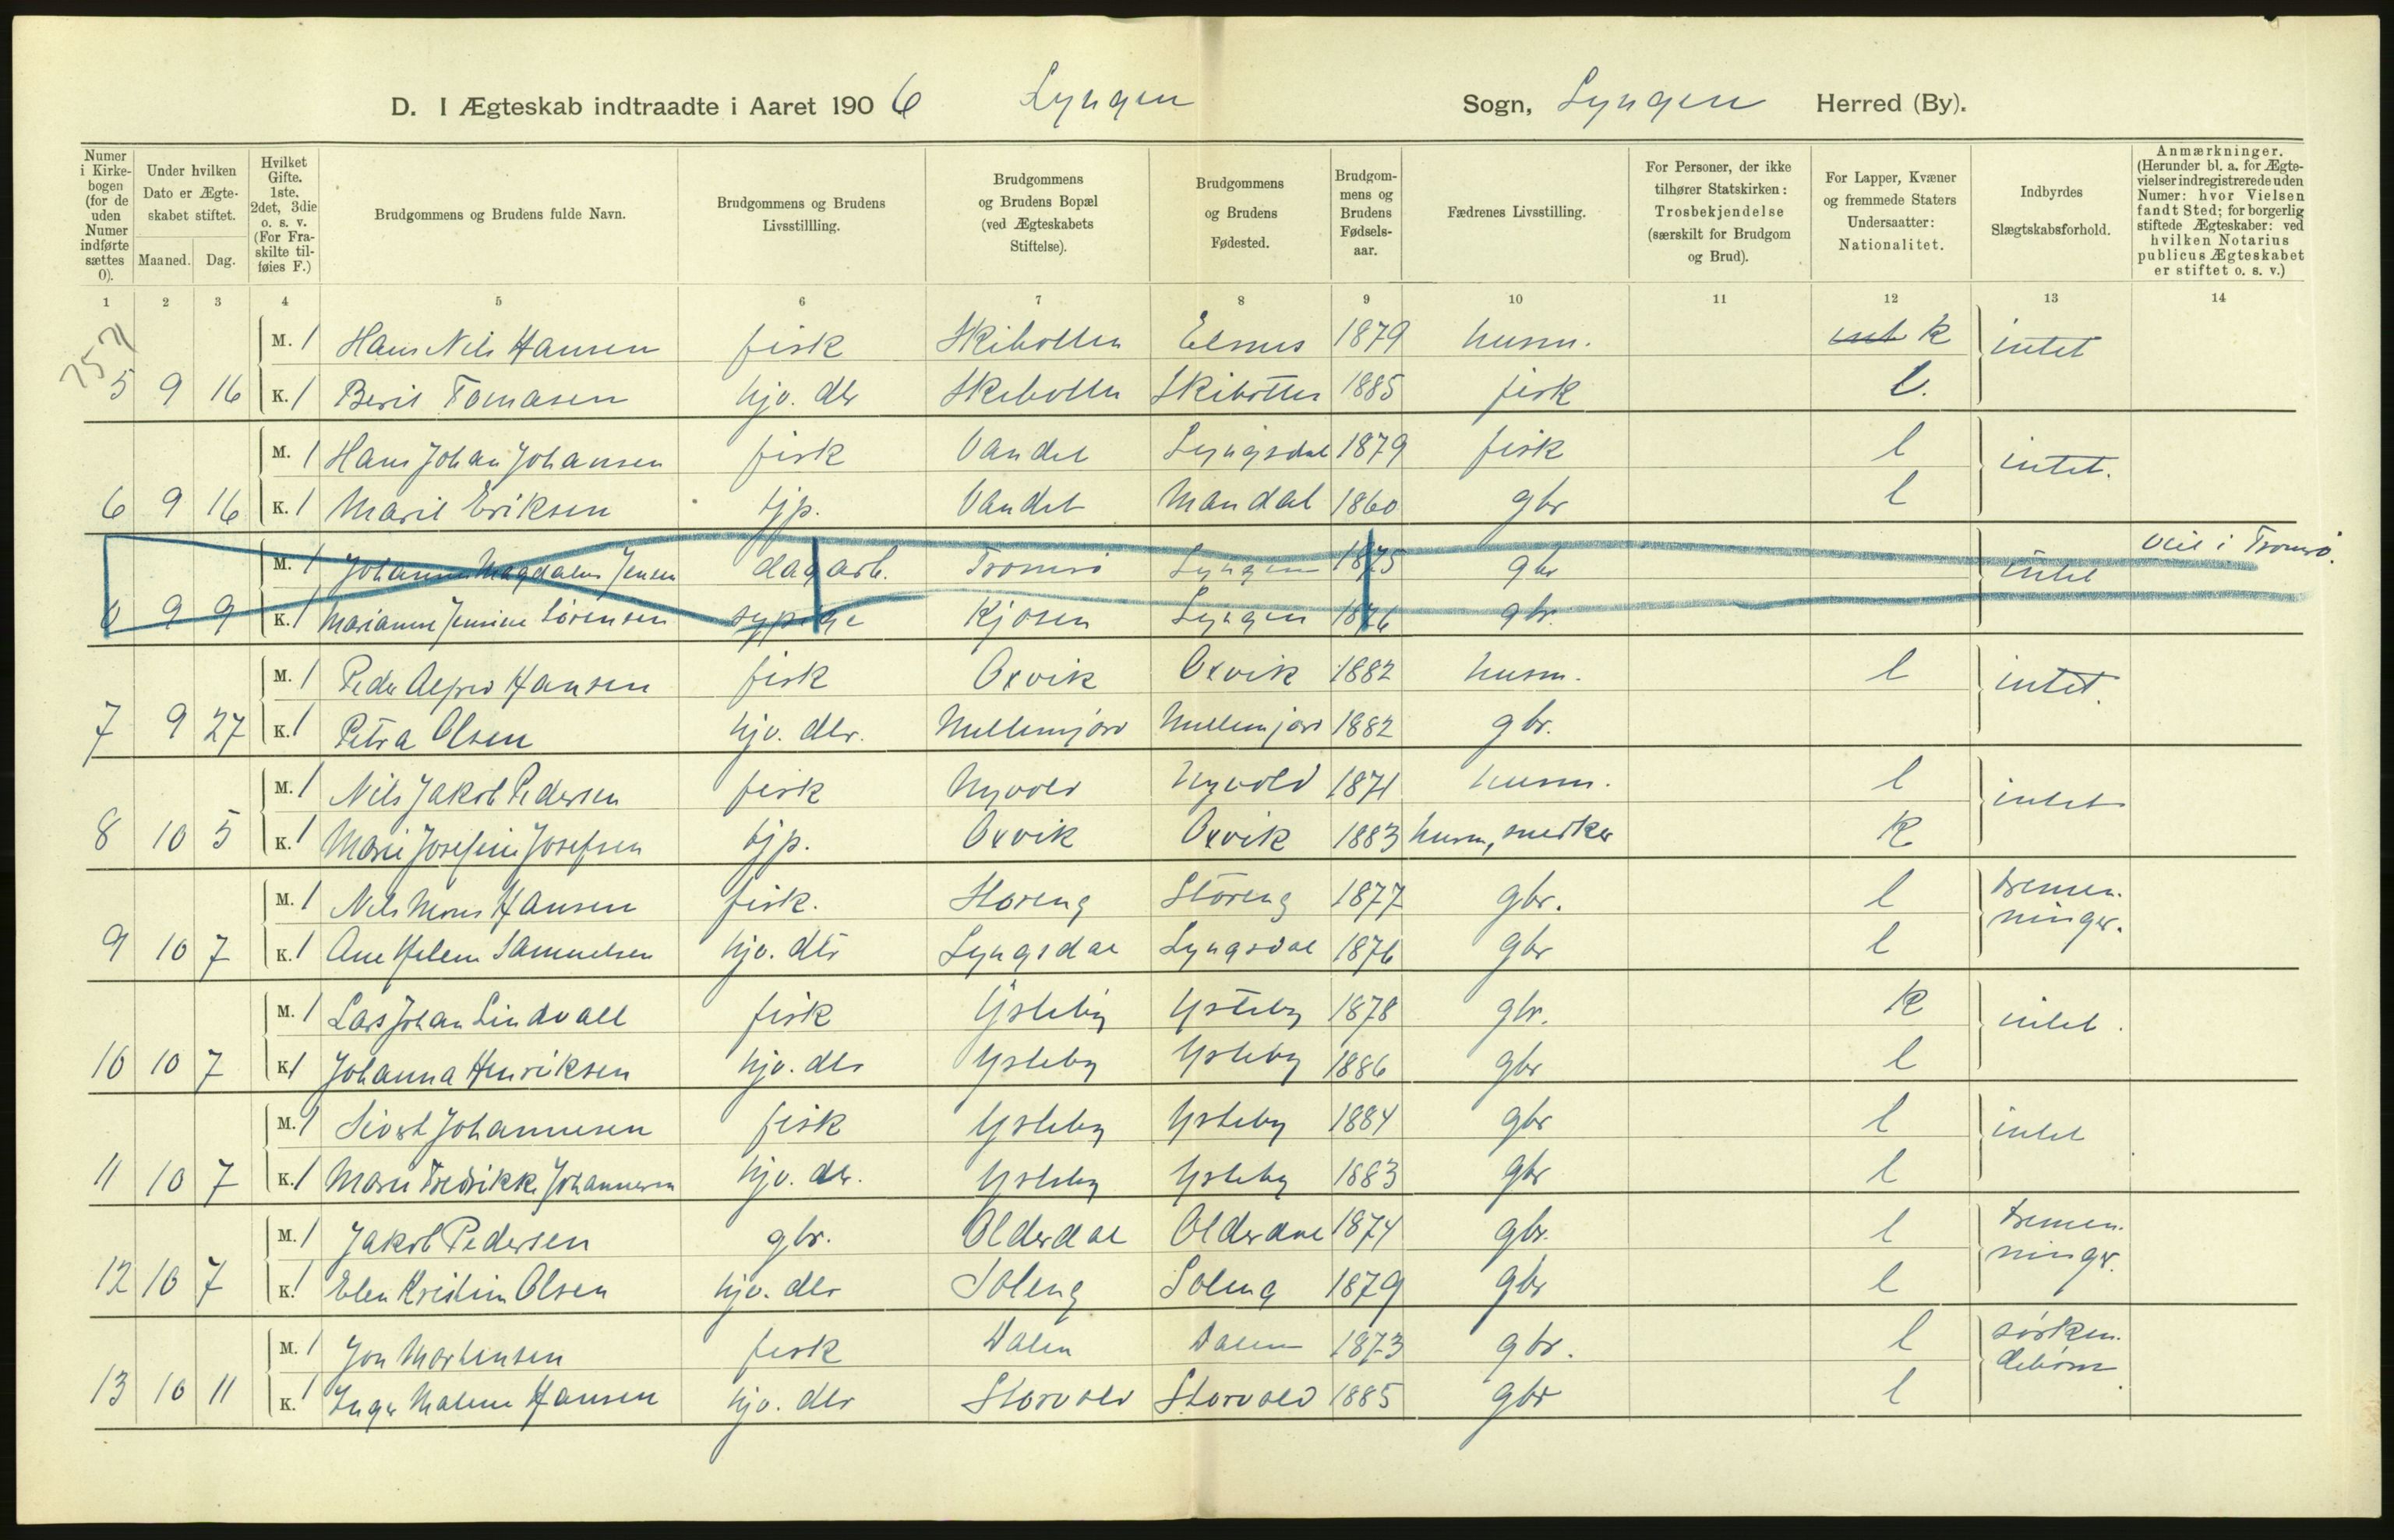 D. I Ægteskab indtraadte i Aaret 1906 Lyngen Sogn, Lyngen Herred (By).
Numer i Kirkebogen (for de uden Numer indførte sættes 0).
Under hvilken Dato er Ægteskabet stiftet.
Maaned. Dag.
Hvilket Gifte. 1ste. 2det, 3die o. s. v. (For Fraskilte tilføies F.)
Brudgommens og Brudens fulde Navn.
Brudgommens og Brudens Livsstillling.
Brudgommens og Brudens Bopæl (ved Ægteskabets Stiftelse).
Brudgommens og Brudens Fødested.
Brudgommens og Brudens Fødselsaar.
Fædrenes Livsstilling.
For Personer, der ikke tilhører Statskirken: Trosbekjendelse (særskilt for Brudgom og Brud).
For Lapper, Kvæner og fremmede Staters Undersaatter: Nationalitet.
Indbyrdes Slægtskabsforhold.
Anmærkninger. (Herunder bl. a. for Ægtevielser indregistrerede uden Numer: hvor Vielsen fandt Sted; for borgerlig stiftede Ægteskaber: ved hvilken Notarius publicus Ægteskabet er stiftet o. s. v.)
1 2 3 4 5 6 7 8 9 10 11 12 13 14
M. 1 Hans Nils Hansen fisk Skibotten 1879 husm. k intet
5 9 16 K. 1 Berit Tomasen hjv. dtr Skibotten Skibotten 1885 fisk l.
M. 1 Hans Johan Johansen fisk Vandet Lyngsdal 1879 fisk l intet.
6 9 16 K. 1 Marit Eriksen tjp. Vandet Mandal 1860 gbr l
M. 1 Johannes Magdalus Jensen dagarb. Tromsø Lyngen 1875 gbr intet viet i Tromsø.
0 9 9 K. 1 Marianne Jensine Sørensen sypige Kjosen Lyngen 1876 gbr.
M. 1 Peder Alfred Hansen fisk Oxvik Oxvik 1882 husm. l intet.
7 9 27 K. 1 Petra Olsen hjv. dtr. 1882 gbr.
M. 1 Nils Jakob Pedersen fisk Nyvold Nyvold 1871 husm. l intet
8 10 5 K. 1 Marie Josefine Josefsen tjp. Oxvik Oxvik 1883 husm, snedker k
M. 1 Nils Mons Hansen fisk. Storeng Storeng 1877 gbr. l tremenninger.
9 10 7 K. 1 Ane Helene Samuelsen hjv. dtr Lyngsdal Lyngsdal 1876 gbr l
M. 1 Lars Johan Lindvall fisk Ysteby Ysteby 1878 gbr. k intet.
10 10 7 K. 1 Johanna Henriksen hjv. dtr Ysteby Ysteby 1886 gbr l
M. 1 Sivert Johannesen fisk Ysteby Ysteby 1884 gbr l intet
11 10 7 K. 1 Marie Fredrikke Johannesen hjv. dtr. Ysteby Ysteby 1883 gbr l
M. 1 Jakob Pedersen gbr. Olderdal Olderdal 1874 gbr. l tremenninger.
12 10 7 K. 1 Elen Kristine Olsen hjv. dtr Soleng Soleng 1879 gbr l
M. 1 Jon Mortensen fisk Dalen Dalen 1873 gbr. l søskendebørn.
13 10 11 K. 1 Inger Malene Hansen hjv. dtr Storvold Storvold 1885 gbr l